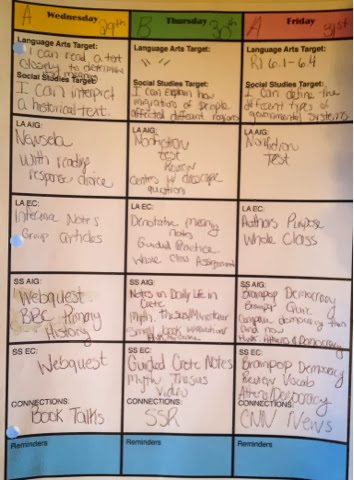 A Wednesday 29th
Language Arts Target:
I can read a text
closely to determine
meaning
Social Studies Target:
I can interpret
a historical text.
LA AIG:
Newsela
With reading
response choice
LA EC:
Interactive Notes
Group articles
SS AIG:
Webquest
BBC Primary
History
SS EC:
Webquest
CONNECTIONS:
Book Talks
Reminders
B Thursday 30th
Language Arts Target:
" "
Social Studies Target:
I can explain how
migration of people
affected different regions
LA AIG:
Nonfiction
Test
Review
Centers w/ task
question
LA EC:
Denotative meaning
notes
Guided Practice
Whole Class Assignment
SS AIG:
Notes on Daily Life in
Crete
Myth Theseus/Minotaur
Small book
SS EC:
Guided Crete Notes
Myth Theseus
Video
CONNECTIONS:
SSR
Reminders
A Friday 31st
Language Arts Target:
RI 6.1-6.4
Social Studies Target:
I can define the
different types of
governmental systems
LA AIG:
Nonfiction
Test
LA EC:
Authors Purpose
Whole Class
SS AIG:
Brainpop Democracy
Brainpop Quiz
Compare democracy then
and now
Athens & Democracy
SS EC:
Brainpop Democracy
Review Vocab
Athens/Democracy
CONNECTIONS:
CNN News
Reminders